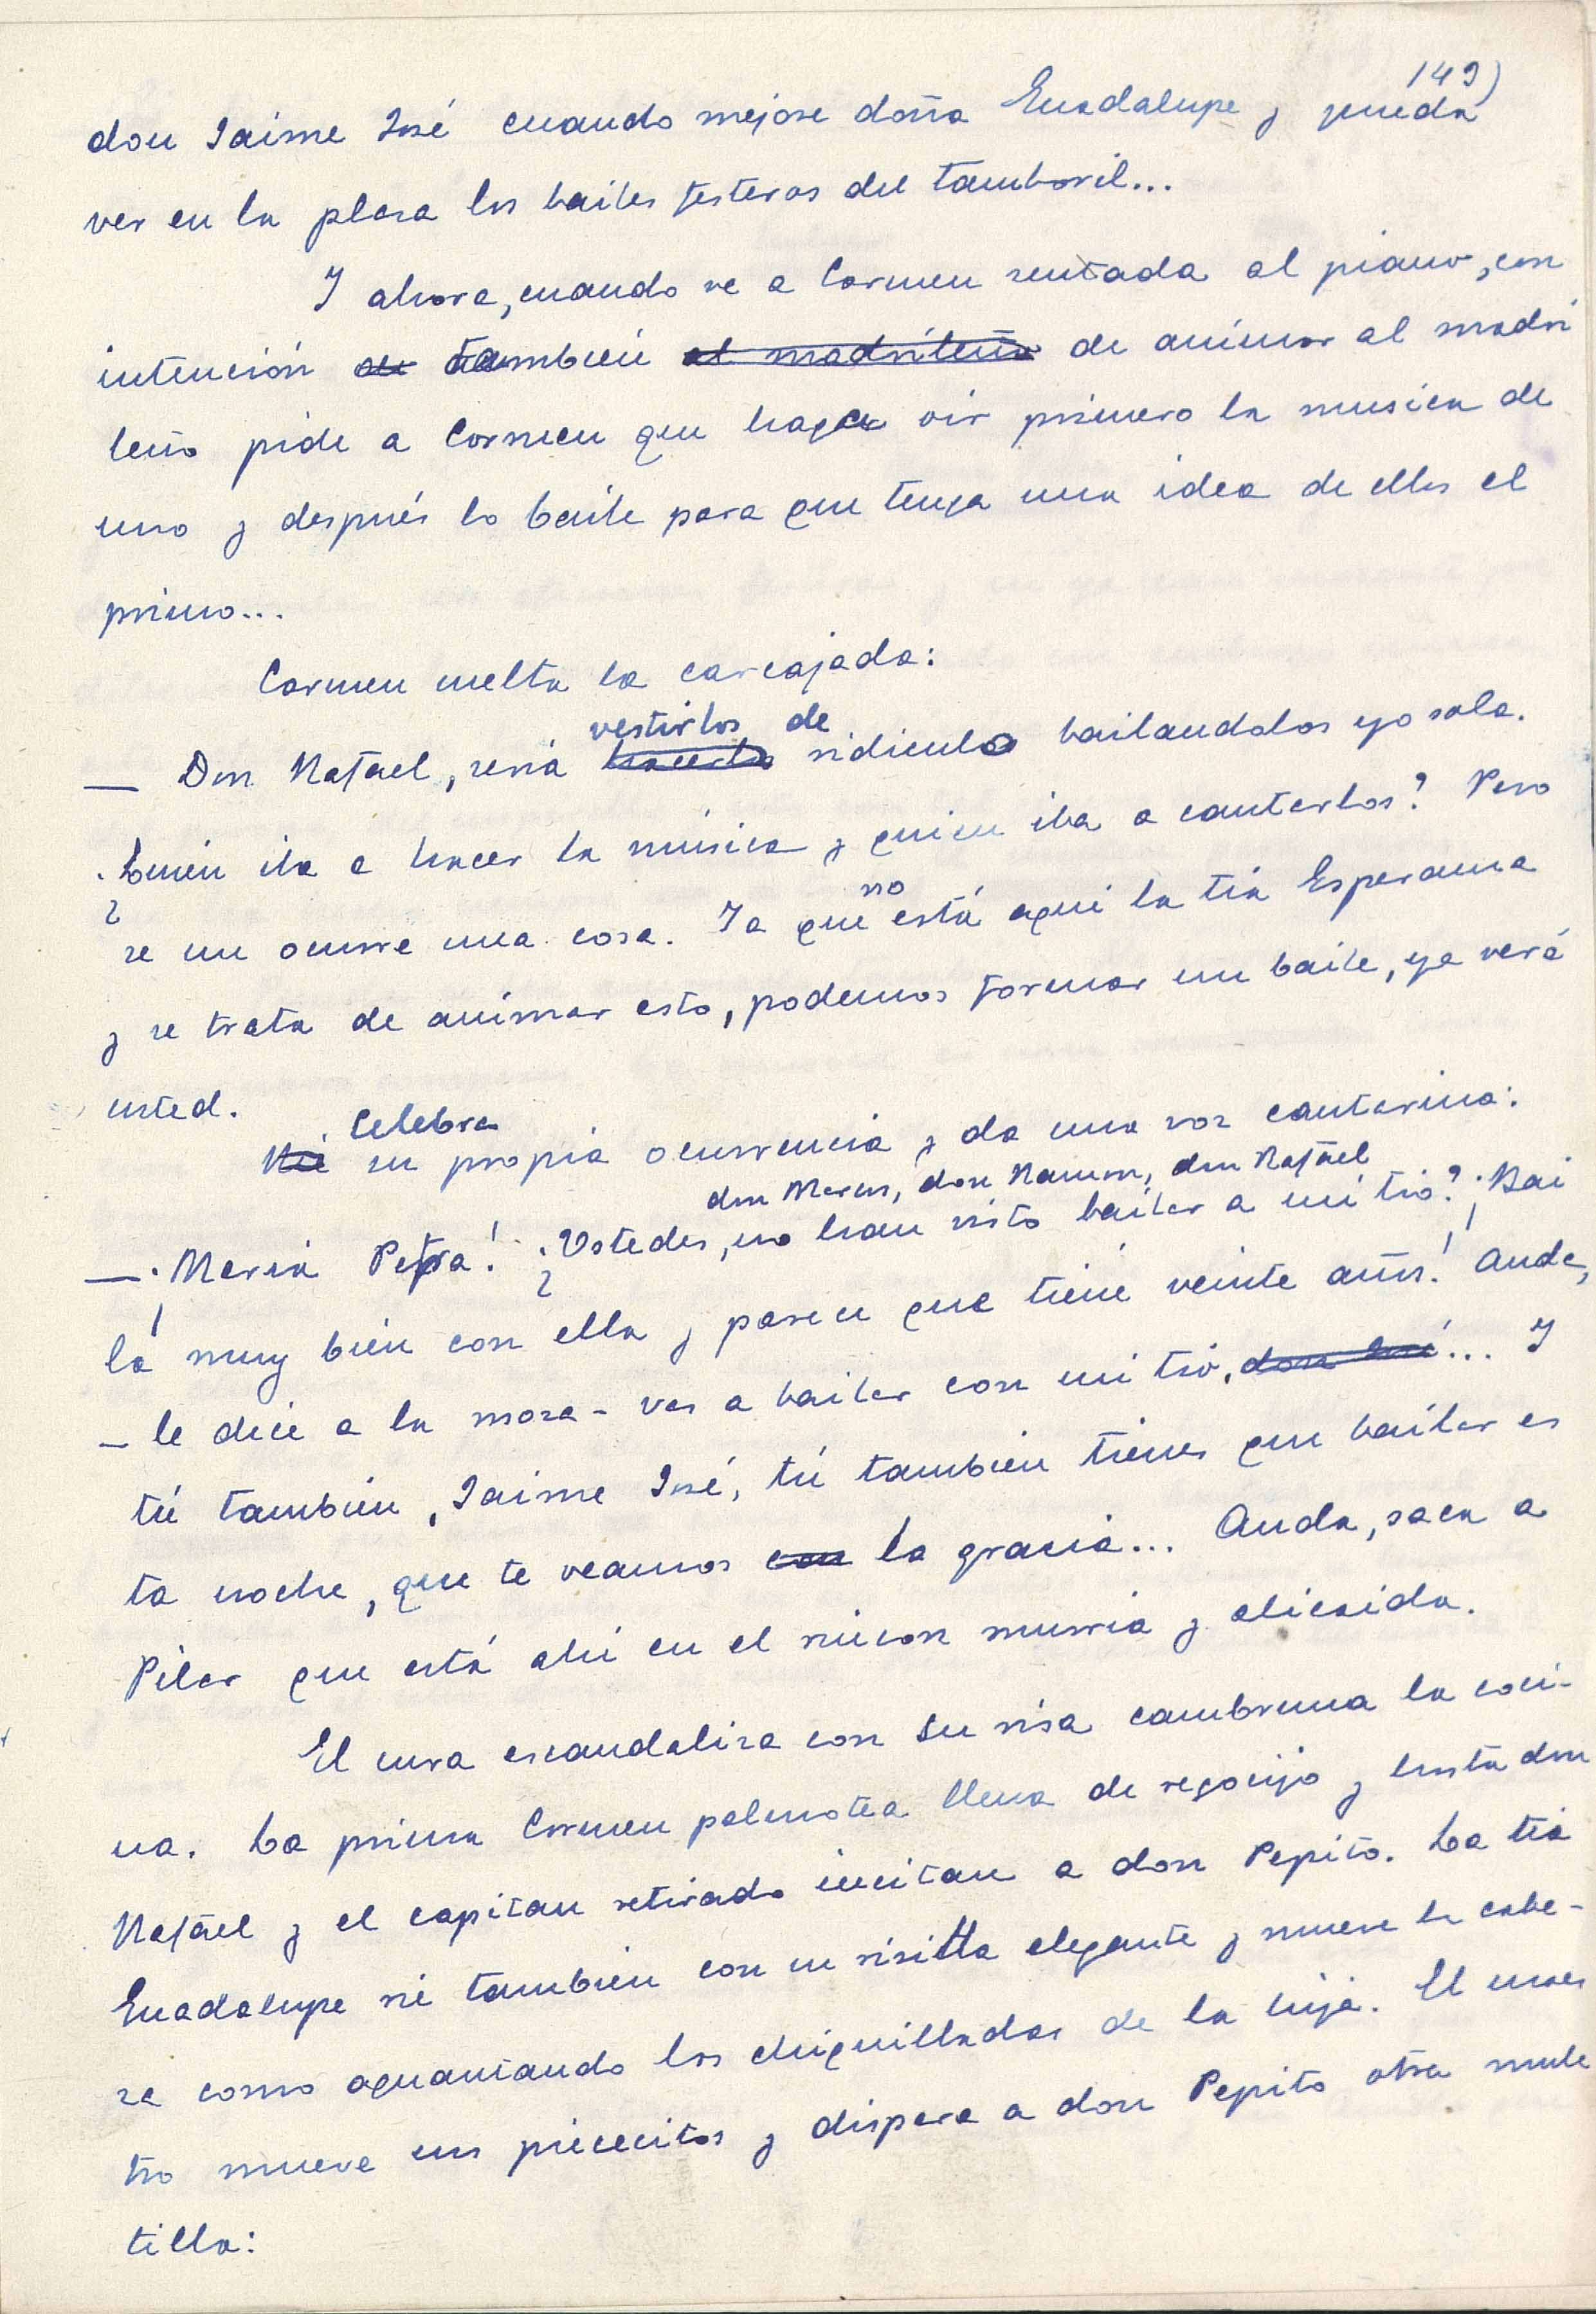 149)
don Jaime José cuando mejore doña Guadalupe y pueda
ver en la plaza los bailes festeros del tamboril...
Y ahora, cuando ve a Carmen sentada al piano, con
intención de también el madrileño de animar al madri
leño pide a Carmen que haga oir primero la musica de
uno y después lo baile para que tenga una idea de ellos el
primo...
Carmen suelta la carcajada:
vestirlos de
— Don Rafael, seria hacerlo ridiculo bailandolos yo sola.
¿Quién iba a hacer la música y quien iba a cantarlos? Pero
no
se me ocurre una cosa. Ya que está aqui la tia Esperanza
y se trata de animar esto, podemos formar un baile, ya verá
usted.
Celebra
Rie su propia ocurrencia y da una voz cantarina:
don Marcos, don Ramon, don Rafael
— ¡Maria Petra! ¿Ustedes, no han visto bailar a mi tio? ¡Bai
la muy bien con ella y parece que tiene veinte años! Anda,
– le dice a la moza – vas a bailar con mi tio, don José... Y
tú también, Jaime José, tú también tienes que bailar es
ta noche, que te veamos con la gracia... Anda, saca a
Pilar que está ahí en el rincon murria y alicaida.
El cura escandaliza con su risa cambruna la coci-
na. La prima Carmen palmotea llena de regocijo y hasta don
Rafael y el capitan retirado incitan a don Pepito. La tia
Guadalupe rie tambien con su risitta elegante y mueve la cabe-
za como aguantando las chiquilladas de la hija. El maes
tro mueve sus piececitos y dispara a don Pepito otra mule
tilla: